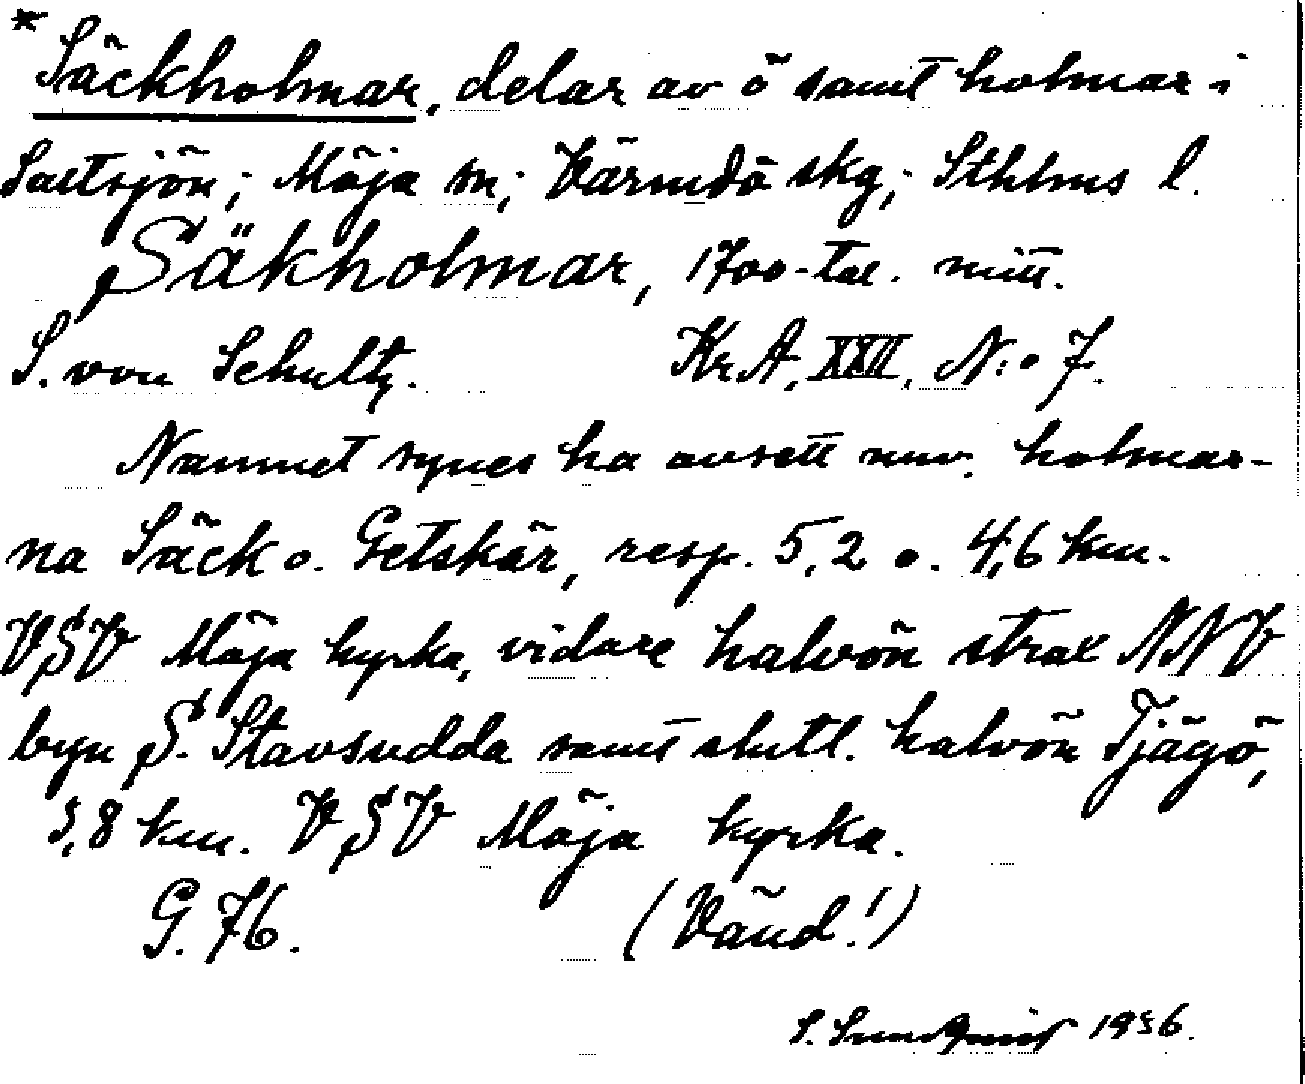 * Säckholmar, delar av ö samt holmar i
Saltsjön; Möja sn; Värmdö skg; Sthlms l.
Säkholmar, 1700-tal. mitt.
S. von Schultz. KrA, XXII, N:o 7.
Namnet synes ha avsett nuv. holmar-
na Säck o. Getskär, resp. 5,2 o. 4,6 km.
VSV Möja kyrka, vidare halvön strax NNV
byn S. Stavsudda samt slutl. halvön Tjägö,
5,8 km. VSV Möja kyrka.
G. 76. (Vänd!)
S. Sundqvist 1936.